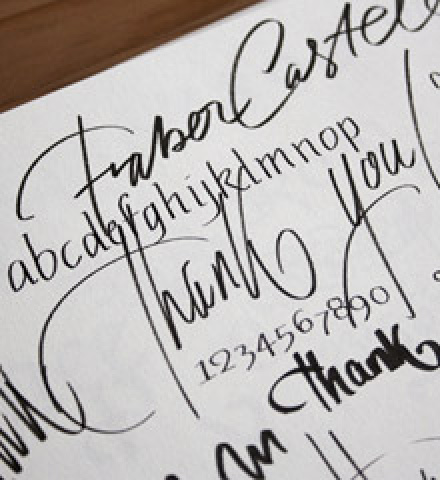 Fraber Castell
abcdefghijkdmnop
Thank you
1234567890
thank